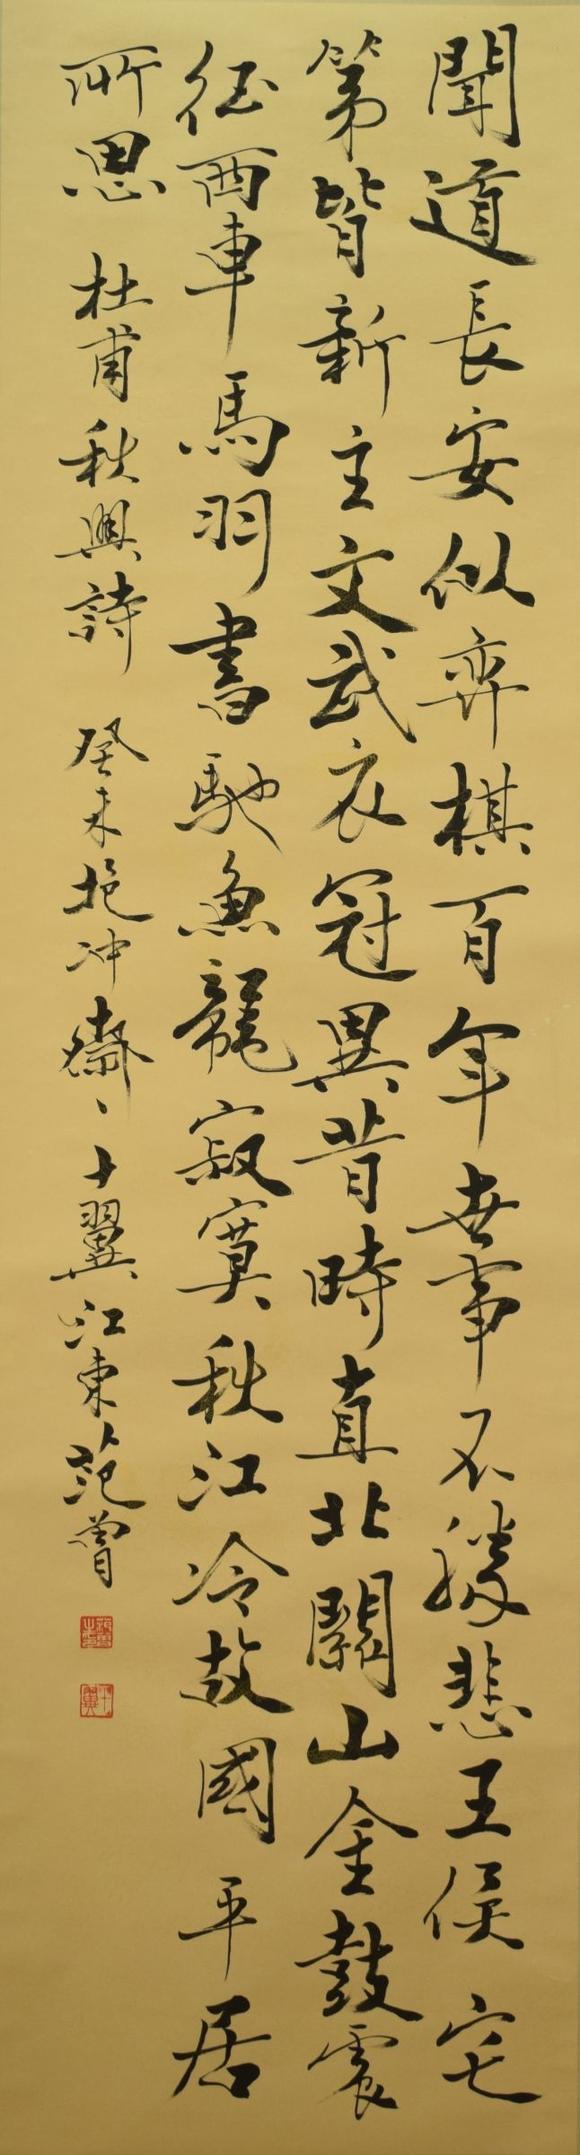 聞道長安似弈棋百年世事不勝悲王侯宅
第皆新主文武衣冠異昔時直北關山金鼓震
征西車馬羽書馳魚龍寂寞秋江冷故國平居
所思 杜甫秋興詩 癸未抱冲齋十翼江東范曾